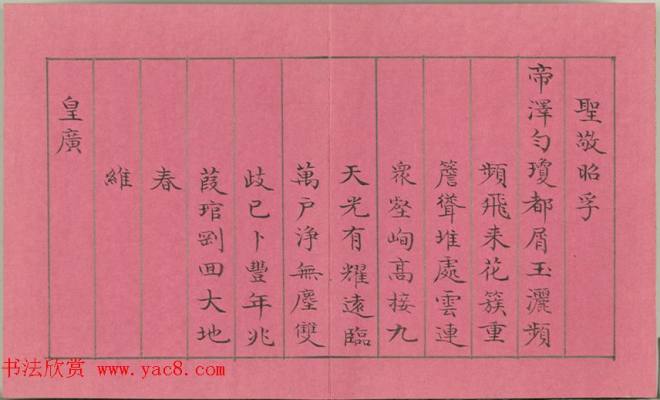 聖敬昭孚
帝澤勻瓊都屑玉灑頻
頻飛来花簇重
簷聳堆處雲連
衆壑峋高接九
天光有耀遠臨
萬戶淨無塵雙
歧已卜豐年兆
葭琯剛回大地
春
維
皇廣
书法欣赏 www.yac8.com